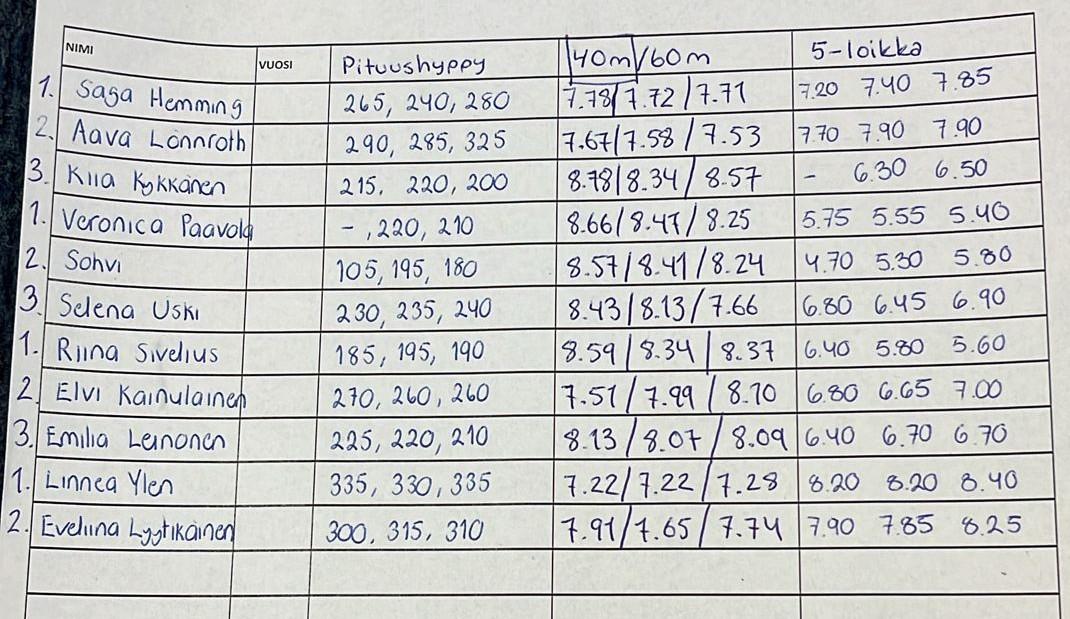 NIMI VUOSI Pituushyppy 40m/60m 5-loikka
1. Saga Hemming 265, 240, 280 7.78/7.72/7.71 7.20 7.40 7.85
2. Aava Lönnroth 290, 285, 325 7.67/7.58/7.53 7.70 7.90 7.90
3. Kiia Kykkänen 215, 220, 200 8.78/8.34/8.57 - 6.30 6.50
1. Veronica Paavola -, 220, 210 8.66/8.47/8.25 5.75 5.55 5.40
2. Sohvi 105, 195, 180 8.57/8.41/8.24 4.70 5.30 5.80
3. Selena Uski 230, 235, 240 8.43/8.13/7.66 6.80 6.45 6.90
1. Riina Sivelius 185, 195, 190 8.59/8.34/8.37 6.40 5.80 5.60
2. Elvi Kainulainen 270, 260, 260 7.51/7.99/8.10 6.80 6.65 7.00
3. Emilia Leinonen 225, 220, 210 8.13/8.07/8.09 6.40 6.70 6.70
1. Linnea Ylen 335, 330, 335 7.22/7.22/7.28 8.20 8.20 8.40
2. Eveliina Lyytikäinen 300, 315, 310 7.91/7.65/7.74 7.90 7.85 8.25